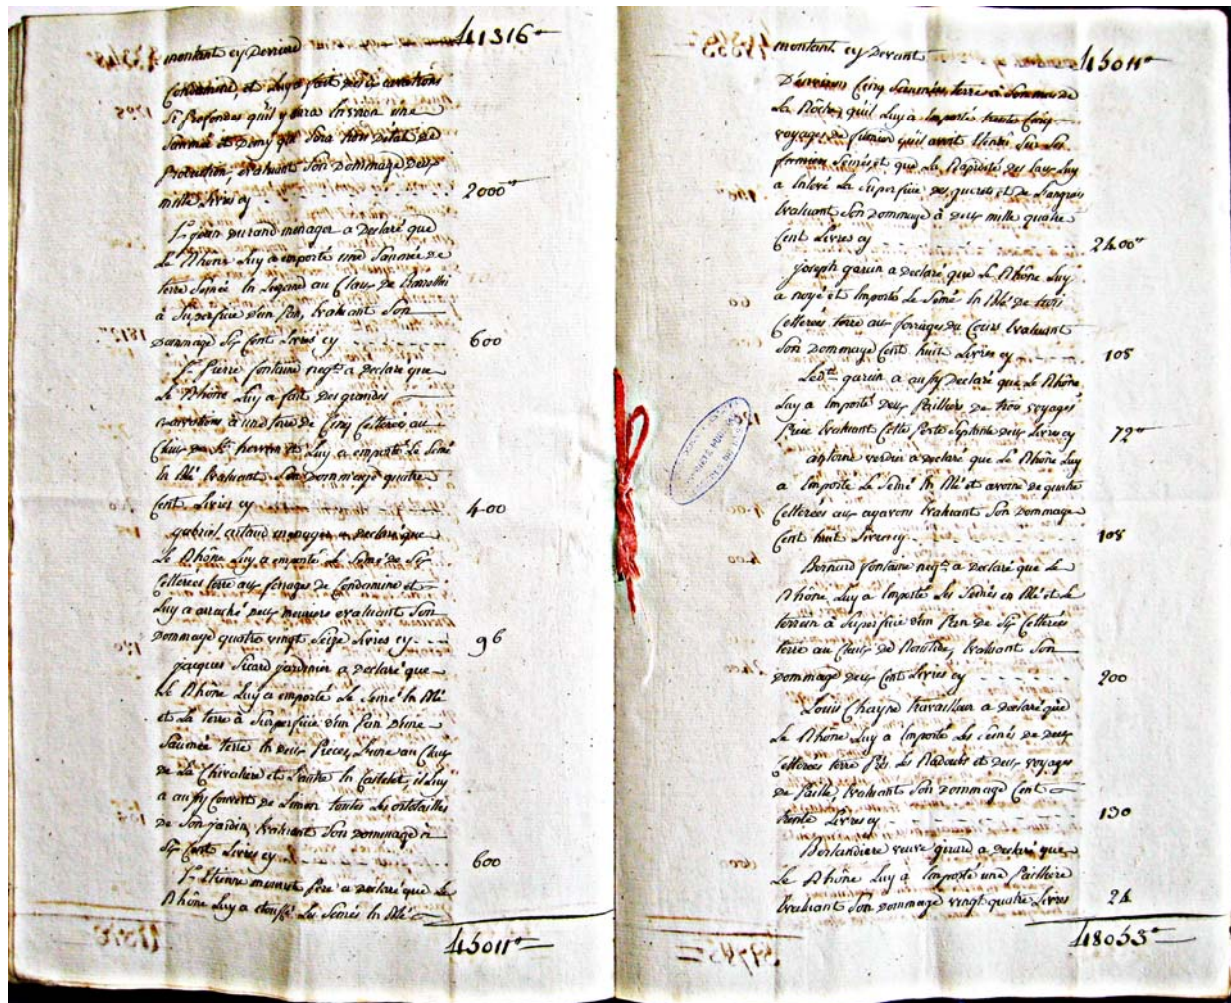 montant cy Derriere 41316#
Condamine, et Luy a fait des Excavations
si Profondes qu'il y aura Environ une
Saumée et Demy qui sera hors D'état de
Production, evaluant son Dommage Deux
mille Livres cy 2000#
Sr. jean durand menager a Declaré que
Le Rhône Luy a emporté une Saumée de
terre Semée En Segond au Claux de
a Superficie d'un Pan, Evaluant son
Dommage Six Cent Livres cy 600
Sr. Pierre fontaine negt. a Declaré que
Le Rhône Luy a fait des grandes
excavations à une terre de Cinq Cetterées au
Claux de et Luy a emporté Le Semé
En Blé Evaluant son Dommage quatre
Cent Livres cy 400
gabriel artaud menager a Declaré que
Le Rhône Luy a emporté Le Semé de Six
Cetterées terre aux ferrages de Condamine et
Luy a arraché deux meuriers evaluant son
Dommage quatre vingt Seize Livres cy 96
jacques Sicard jardinier a Declaré que
Le Rhône Luy a emporté Le Semé En Blé
et La terre à Superficie d'un Pan D'une
Saumée terre En deux Pièces, L'une au Claux
de La Chivaliere et L'autre En Castelet, il Luy
a aussy Couvert de Limon toutes Les ortolailles
de Son jardin, Evaluant son Dommage à
Six Cent Livres cy 600
Sr. Etienne Pere a Declaré que Le
Rhône Luy a etouffé Les Semés En Blé
45011#
montant cy Devant 45011#
D'environ Cinq Saumées terre à de
La Roche, qu'il Luy a Emporté trente Cinq
voyages de fumier qu'il avoit Etendu Sur Ses
Semés et que La Rapidité des Eaux Luy
a Enlevé La Superficie des guerets et de L'angrais
Evaluant Son Dommage à deux mille quatre
Cent Livres cy 2400#
joseph garcin a Declaré que Le Rhône Luy
a noyé et Emporté Le Semé En Blé de trois
Cetterées terre aux ferrages du Cours Evaluant
Son Dommage Cent huit Livres cy 108
Ledt. garcin a aussy Declaré que Le Rhône
Luy a Emporté deux Pailliers de trois voyages
Piece Evaluant Cette Perte Septante deux Livres cy 72#
antoine verdier a Declaré que Le Rhône Luy
a Emporté Le Semé En Blé et avoine de quatre
Cetterées aux agavons Evaluant Son Dommage
Cent huit Livres cy 108
Bernard fontaine negt. a Declaré que Le
Rhône Luy a Emporté Les Semés en Blé et Le
terrein à Superficie d'un Pan de Six Cetterées
terre au Claux de Evaluant Son
Dommage deux Cent Livres cy 200
Louis Chayne travailleur a Declaré que
Le Rhône Luy a Emporté Les Semés de deux
Cetterées terre Près Les Radoubs et deux voyages
de Paille, Evaluant Son Dommage Cent
trente Livres cy 130
veuve girard a Declaré que
Le Rhône Luy a Emporté une Pailliere
Evaluant Son Dommage vingt quatre Livres 24
48053#